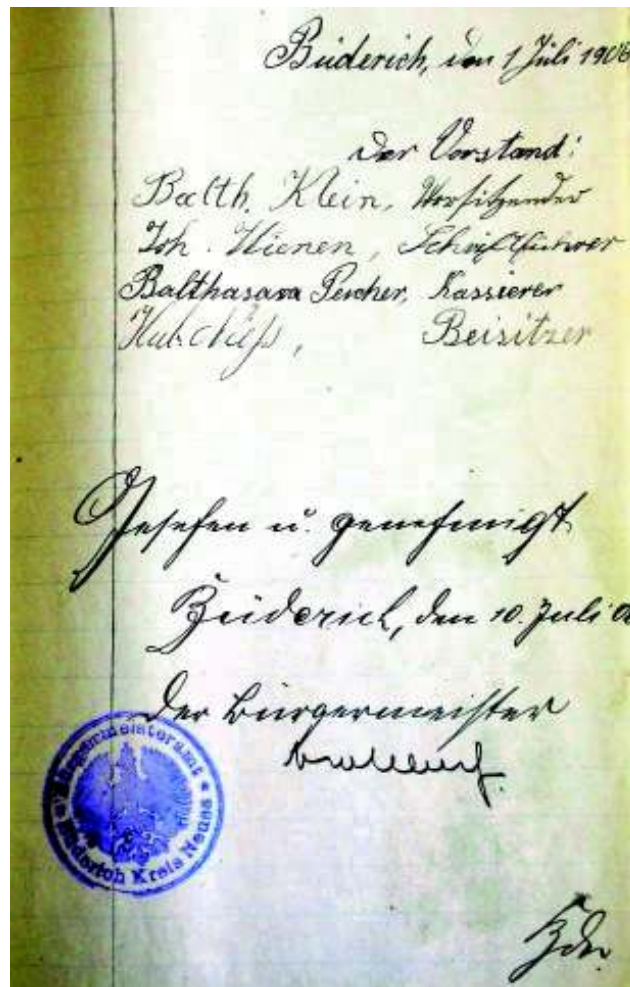 Büderich, den 1 Juli 1906
Der Vorstand:
Balth. Klein, Vorsitzender
Joh. Wienen, Schriftführer
Balthasar Kassierer
Hub. Beisitzer
Gesehen u. genehmigt
Büderich, den 10. Juli 0
Der Bürgermeister
Bürgermeisteramt
Büderich Kreis Neuss